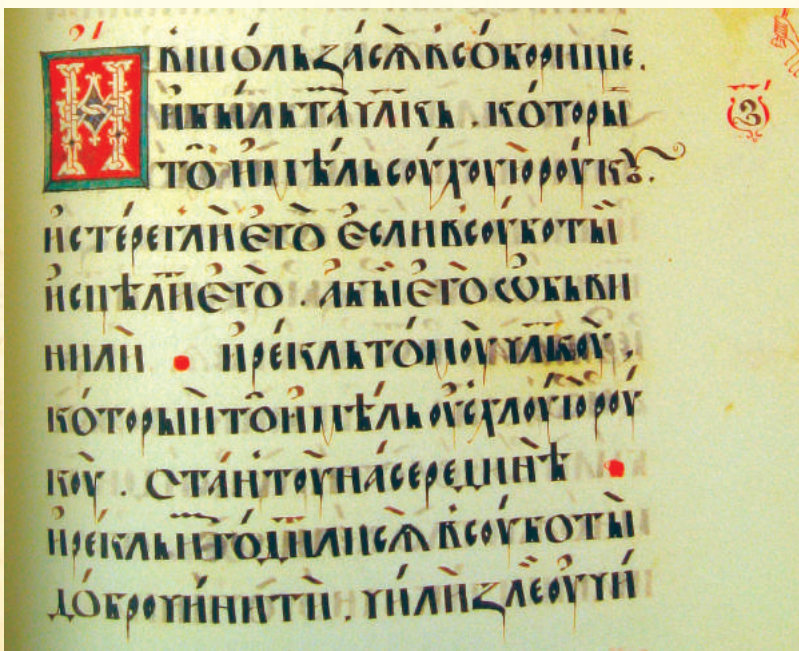 И вшолъ засѧ в сборнище.
и былъ та чл҃кь. которы
то имѣль соухоую роукꙋ.
и стерегли его если в соуботы
исцѣли его. абы его ѡбъви
нили • и реклъ томоу чл҃коу,
который то имѣлъ оусхлоую роу
коу. стани тоу на середине •
и реклъ и годилисѧ в соуботы
добро чинити. чили злѐ оучи
З